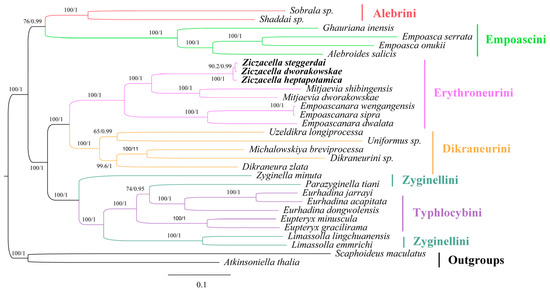 Sobrala sp.
100/1
Alebrini
76/0.99
Shaddai sp.
Ghauriana inensis
100/1
Empoasca serrata
100/1
100/1
Empoasca onukii
Empoascini
100/1
Alebroides salicis
Ziczacella steggerdai
90.2/0.99
Ziczacella dworakowskae
100/1
Ziczacella heptapotamica
100/1
Mitjaevia shibingensis
100/1
Mitjaevia dworakowskae
Erythroneurini
100/1
Empoascanara wengangensis
100/1
Empoascanara sipra
100/1
Empoascanara dwalata
100/1
Uzeldikra longiprocessa
65/0.99
Uniformus sp.
100/1
Michalowskiya breviprocessa
100/11
Dikraneurini
Dikraneurini sp.
99.6/1
Dikraneura zlata
100/1
Zyginella minuta
Parazyginella tiani
Zyginellini
74/0.95
Eurhadina jarrayi
100/1
100/1
Eurhadina acapitata
100/1
Eurhadina dongwolensis
Typhlocybini
100/1
Eupteryx minuscula
100/1
Eupteryx gracilirama
Limassolla lingchuanensis
100/1
Limassolla emmrichi
Zyginellini
Scaphoideus maculatus
100/1
Outgroups
Atkinsoniella thalia
0.1